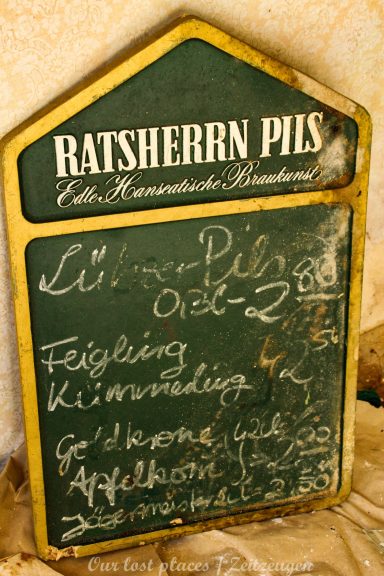 RATSHERRN PILS
Edle Hanseatische Braukunst
Lübzer Pils
0,3L - 2 80
Feigling 2 50
Kümmerling
Goldkrone
Apfelkorn
Jägermeister 2cl - 2,50
Our lost places / Zeitzeugen